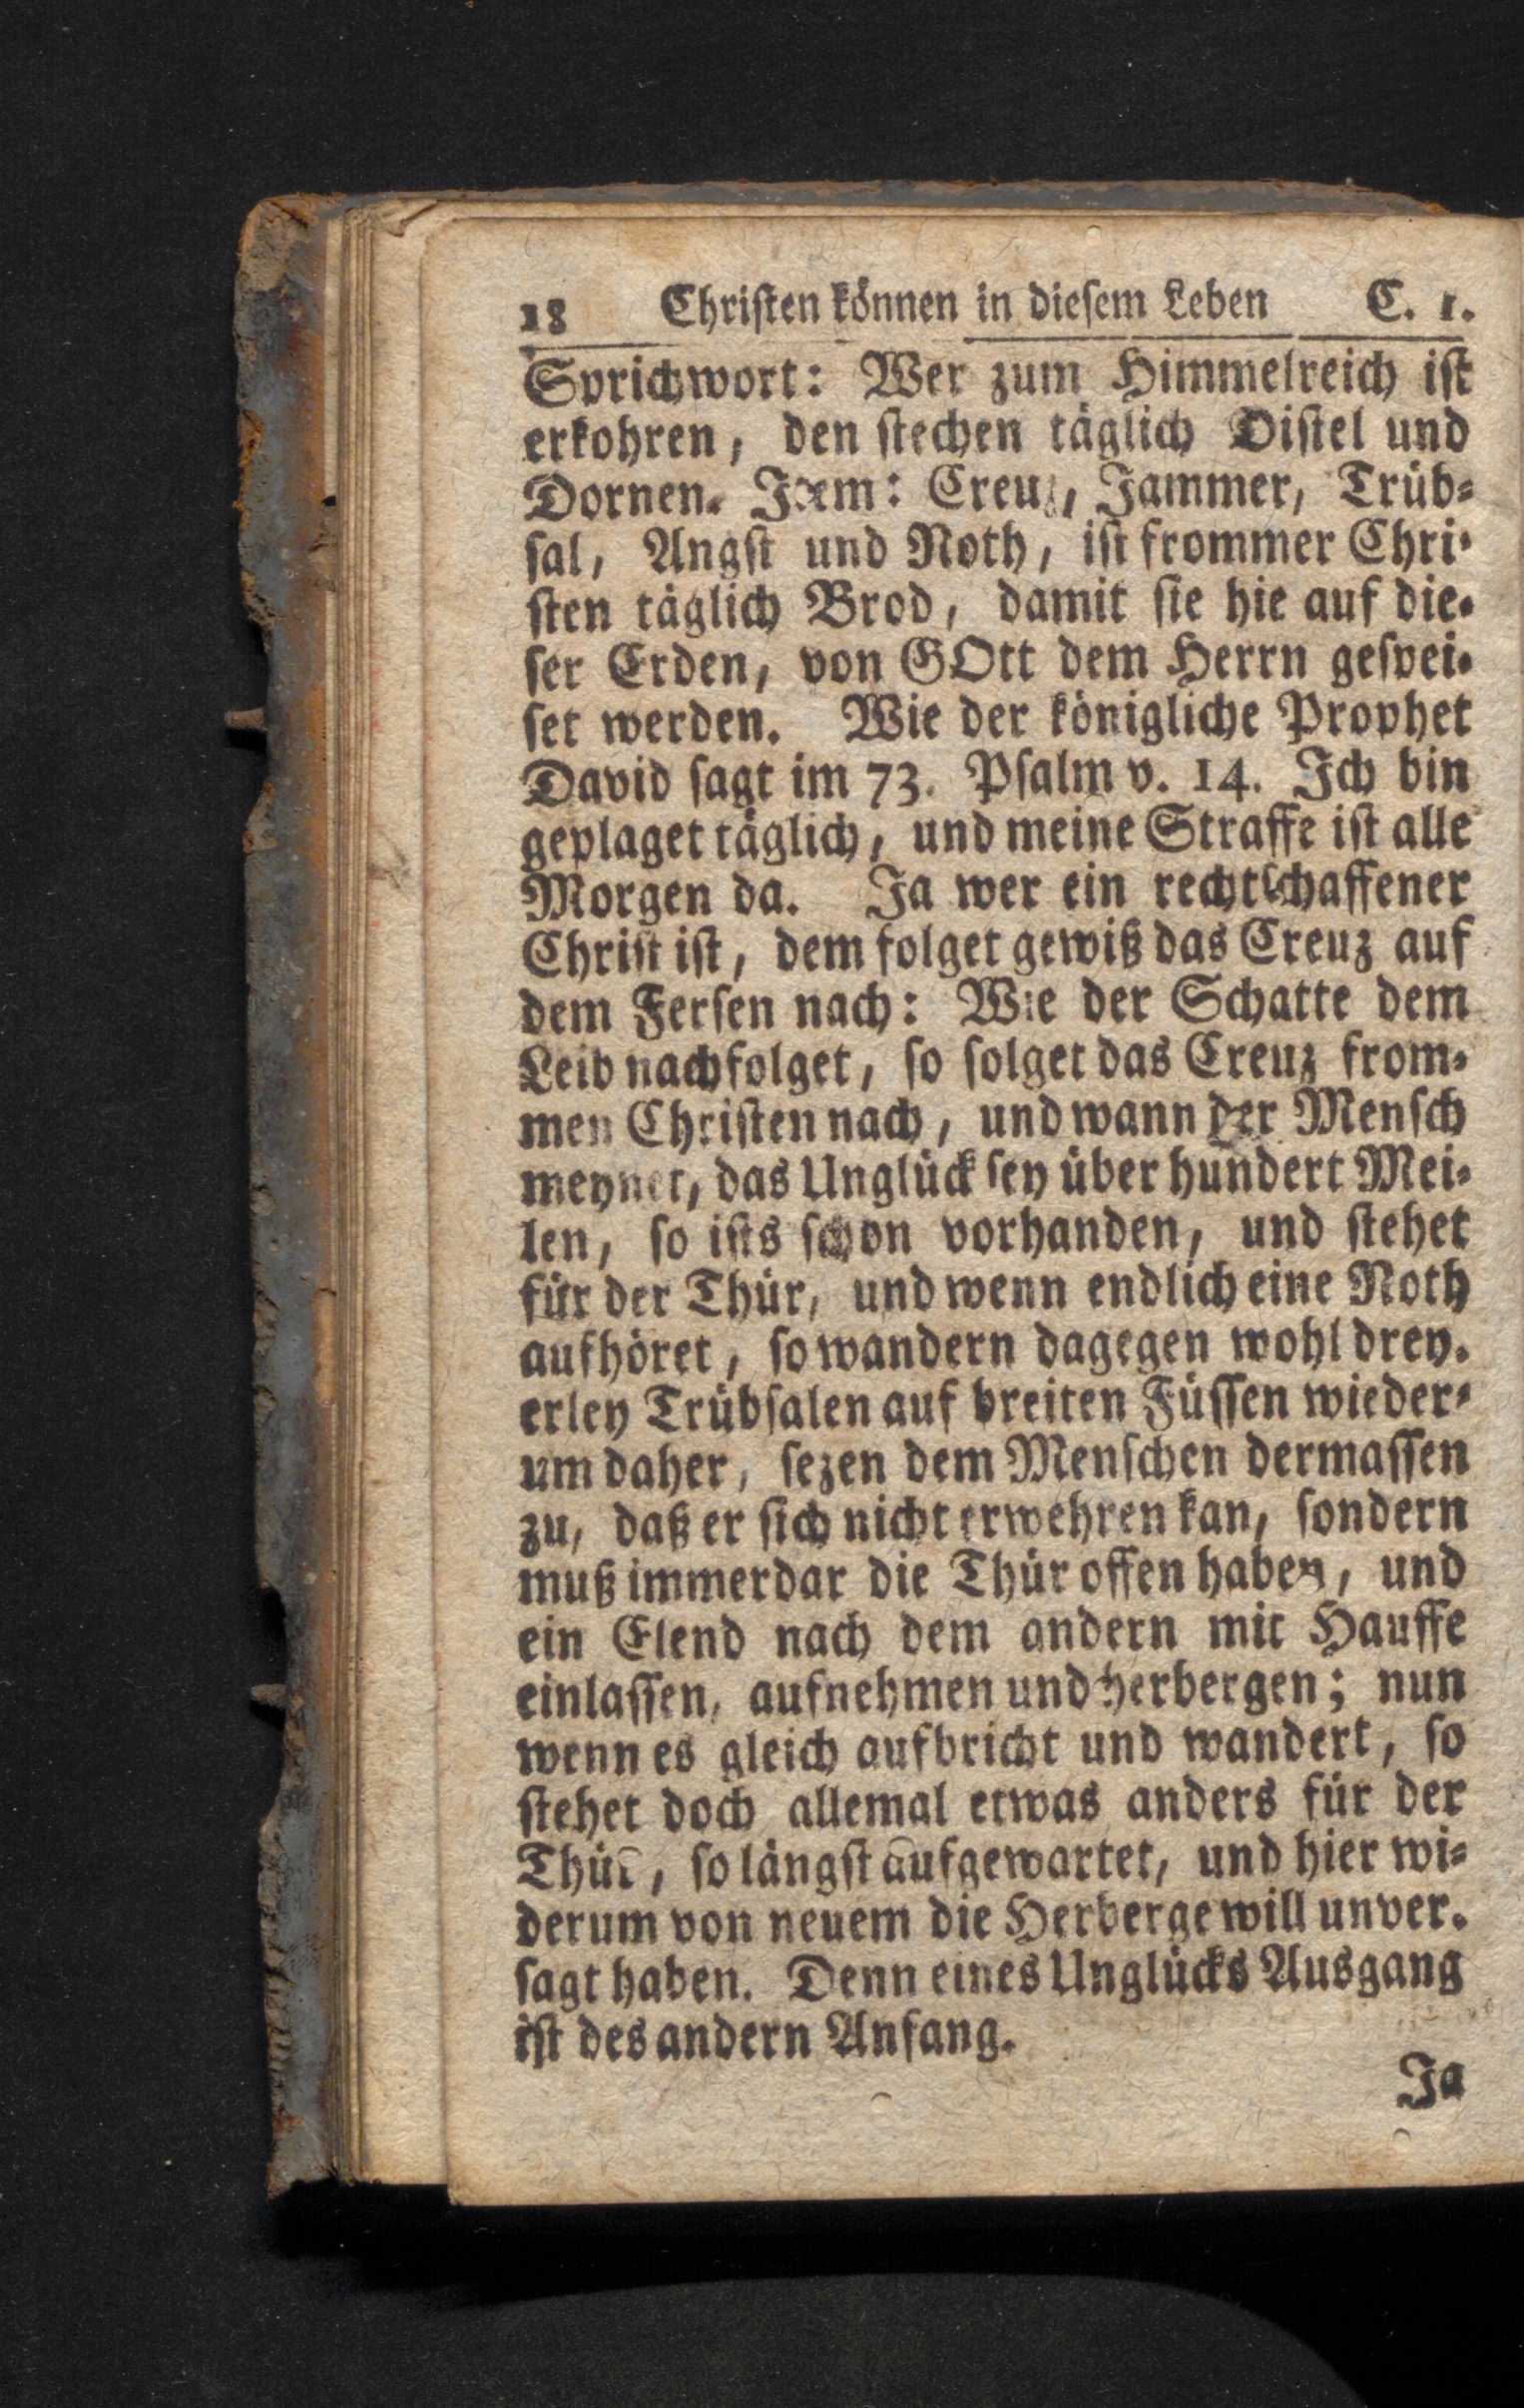 18 Christen können in diesem Leben C. 1.
Sprichwort: Wer zum Himmelreich ist
erkohren, den stechen täglich Distel und
Dornen. Item: Creuz, Jammer, Trüb-
sal, Angst und Noth, ist frommer Chri-
sten täglich Brod, damit sie hie auf die-
ser Erden, von GOtt dem Herrn gespei-
set werden. Wie der königliche Prophet
David sagt im 73. Psalm v. 14. Ich bin
geplaget täglich, und meine Straffe ist alle
Morgen da. Ja wer ein rechtschaffener
Christ ist, dem folget gewiß das Creuz auf
dem Fersen nach: Wie der Schatte dem
Leib nachfolget, so folget das Creuz from-
men Christen nach, und wann der Mensch
meynet, das Unglück sey über hundert Mei-
len, so ists schon vorhanden, und stehet
für der Thür, und wenn endlich eine Noth
aufhöret, so wandern dagegen wohl drey-
erley Trübsalen auf breiten Füssen wieder-
um daher, sezen dem Menschen dermassen
zu, daß er sich nicht erwehren kan, sondern
muß immerdar die Thür offen haben, und
ein Elend nach dem andern mit Hauffe
einlassen, aufnehmen und herbergen; nun
wenn es gleich aufbricht und wandert, so
stehet doch allemal etwas anders für der
Thür, so längst aufgewartet, und hier wi-
derum von neuem die Herberge will unver-
sagt haben. Denn eines Unglücks Ausgang
ist des andern Anfang.
Ja